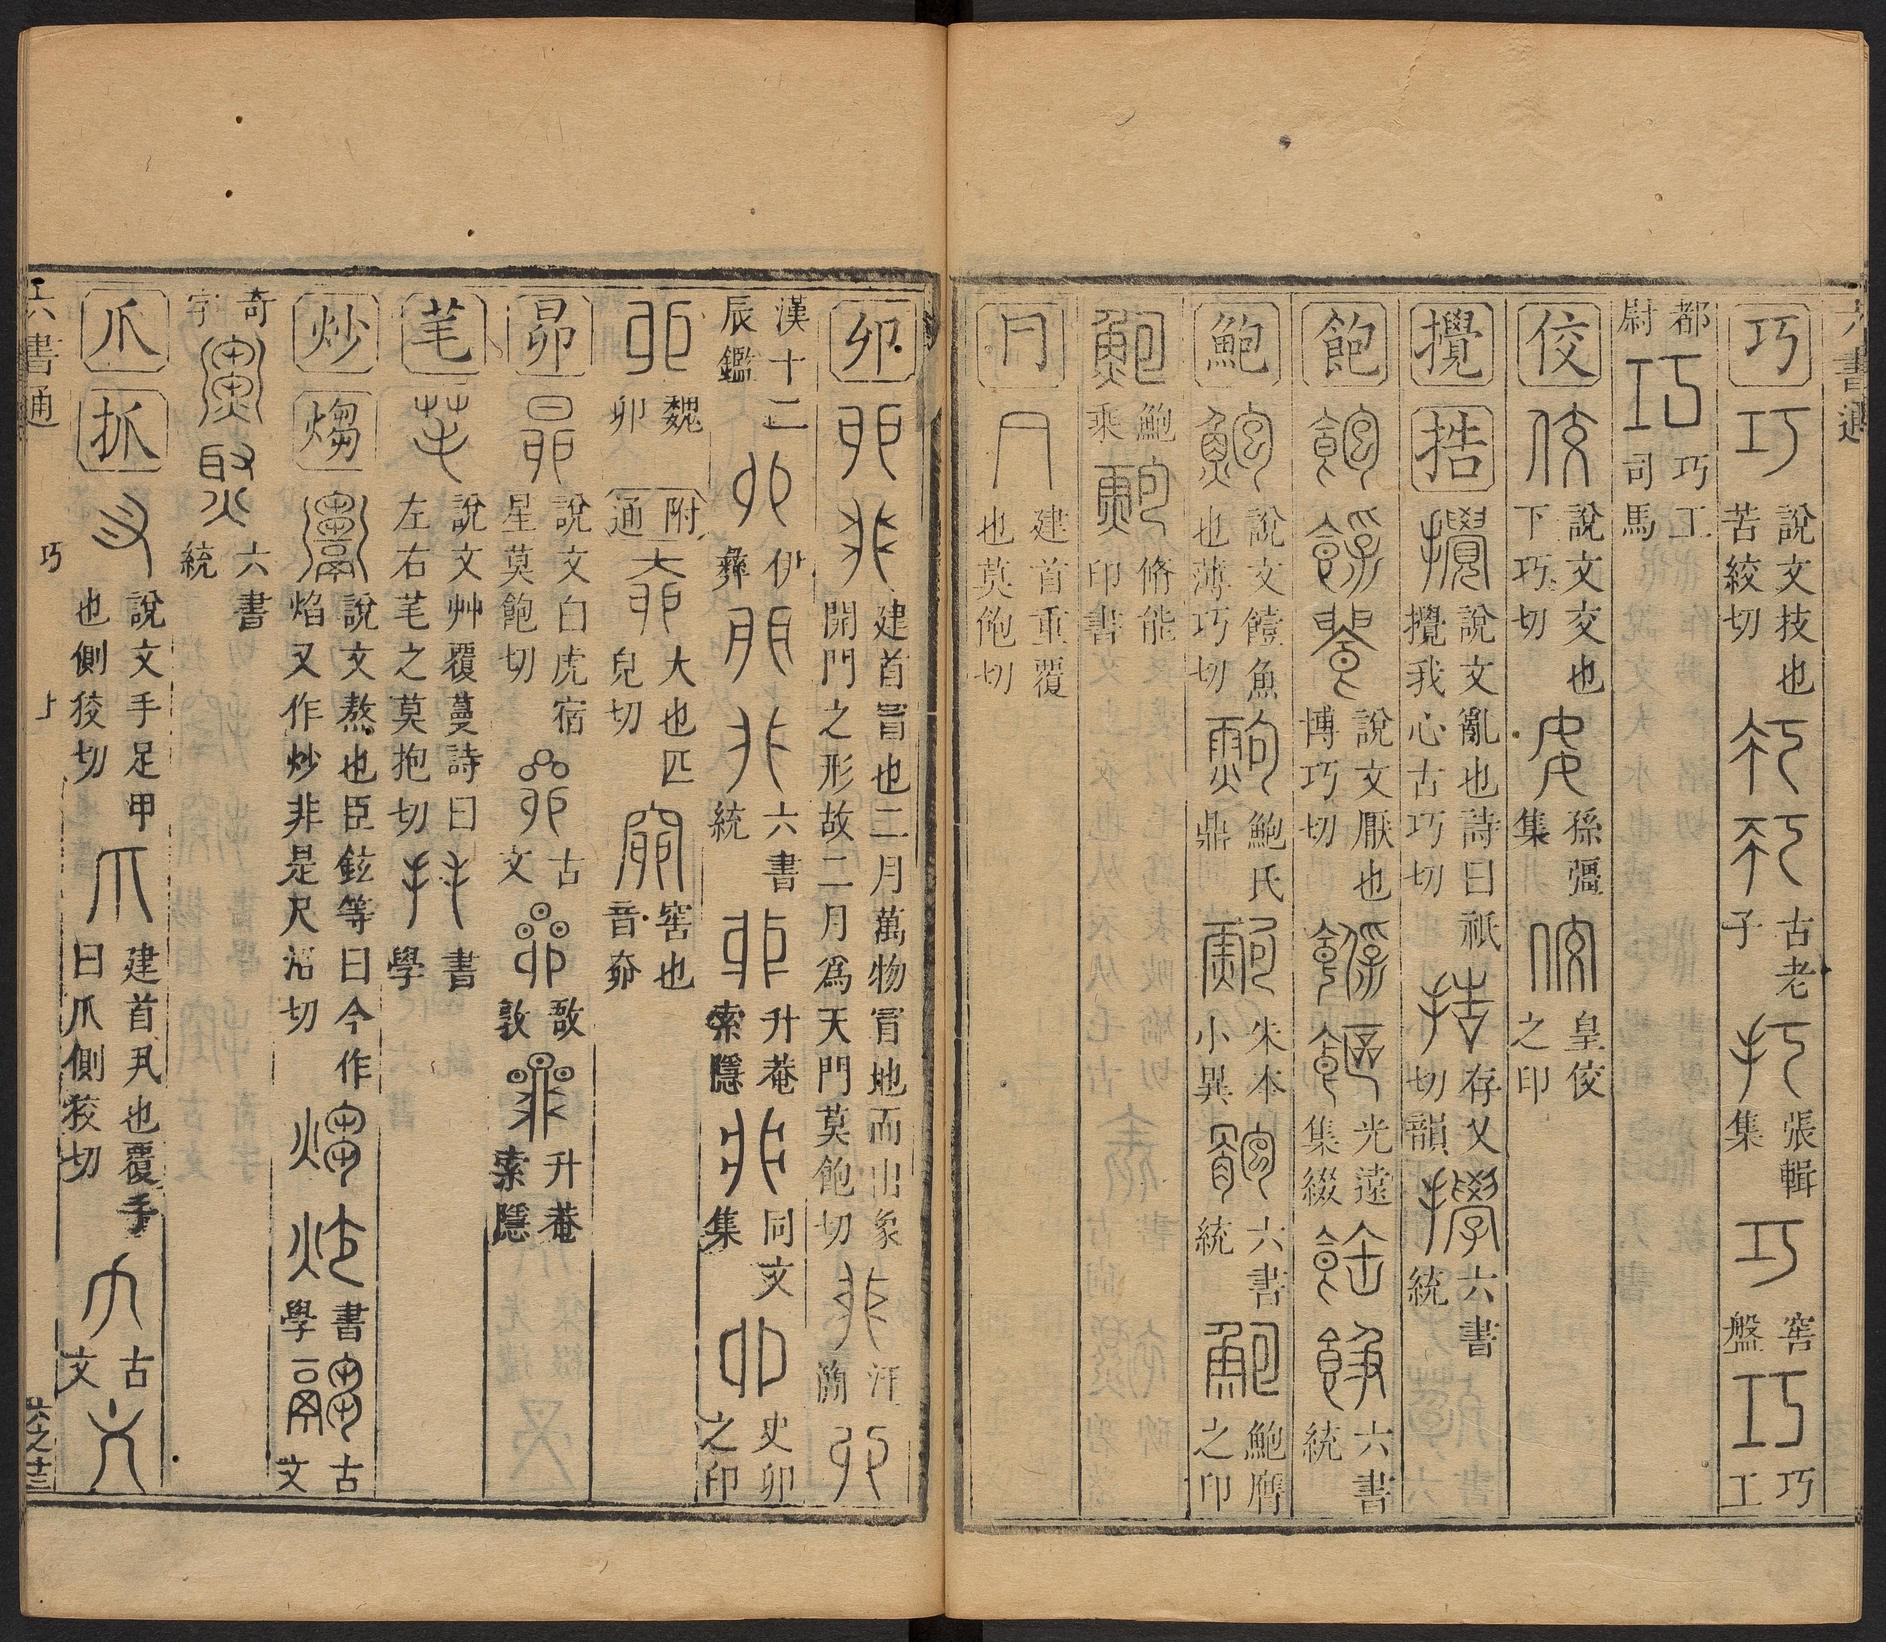 六書通
巧 說文技也苦絞切 古老子 張輯集 窖盤 巧工
都尉 巧工司馬
佼 說文交也下巧切 孫彊集 皇佼之印
攪 捁 說文亂也詩曰祇攪我心古巧切 存乂切韻 六書統
飽 說文厭也博巧切 光遠集綴 六書統
鮑 說文饐魚也薄巧切 鮑氏鼎 朱本小異 六書統 鮑膺之印
鮑乘 脩能印書
冃 建首重覆也莫飽切
卯 建首冒也二月萬物冒地而出象開門之形故二月爲天門莫飽切 汗簡
漢十二辰鑑 伊彝 六書統 升菴索隱 同文集 史卯之印
魏卯 附通 大也匹皃切 窖也音奅
昴 說文白虎宿星莫飽切 古文 敔敦 升菴索隱
芼 說文艸覆蔓詩曰左右芼之莫抱切 書學
炒 㷅 說文熬也臣鉉等曰今作㷅又作炒非是尺沼切 書學 古文
奇字 六書統
爪 抓 說文手足甲也側狡切 建首丮也覆手曰爪側狡切 古文
六書通 巧 上 六之十三